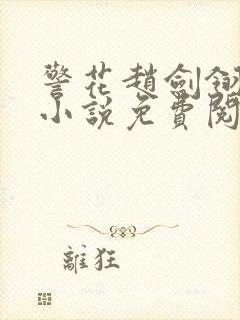 警花趙劍
小說免費閱
離狂